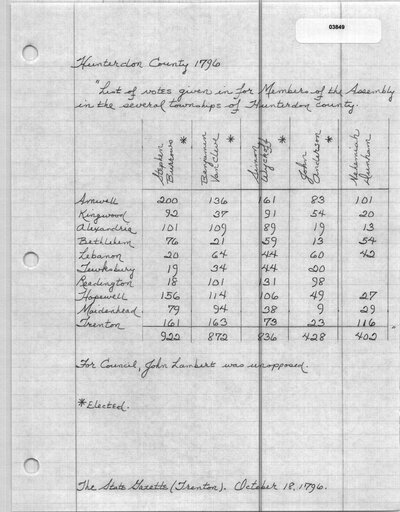 03849
Hunterdon County 1796
"List of votes given in for Members of the Assembly
in the several townships of Hunterdon County.
Stephen Burrows * Benjamin Van Cleve * Simon Wyckoff * John Anderson * Nehemiah Dunham
Amwell 200 136 161 83 101
Kingwood 92 37 91 54 20
Alexandria 101 109 89 19 13
Bethlehem 76 21 59 13 54
Lebanon 20 64 44 60 42
Tewksbury 19 34 44 20
Readington 18 101 131 98
Hopewell 156 114 106 49 27
Maidenhead 79 94 38 9 29
Trenton 161 163 73 23 116
922 872 836 428 402 "
For Council, John Lambert was unopposed.
*Elected.
The State Gazette (Trenton). October 18, 1796.